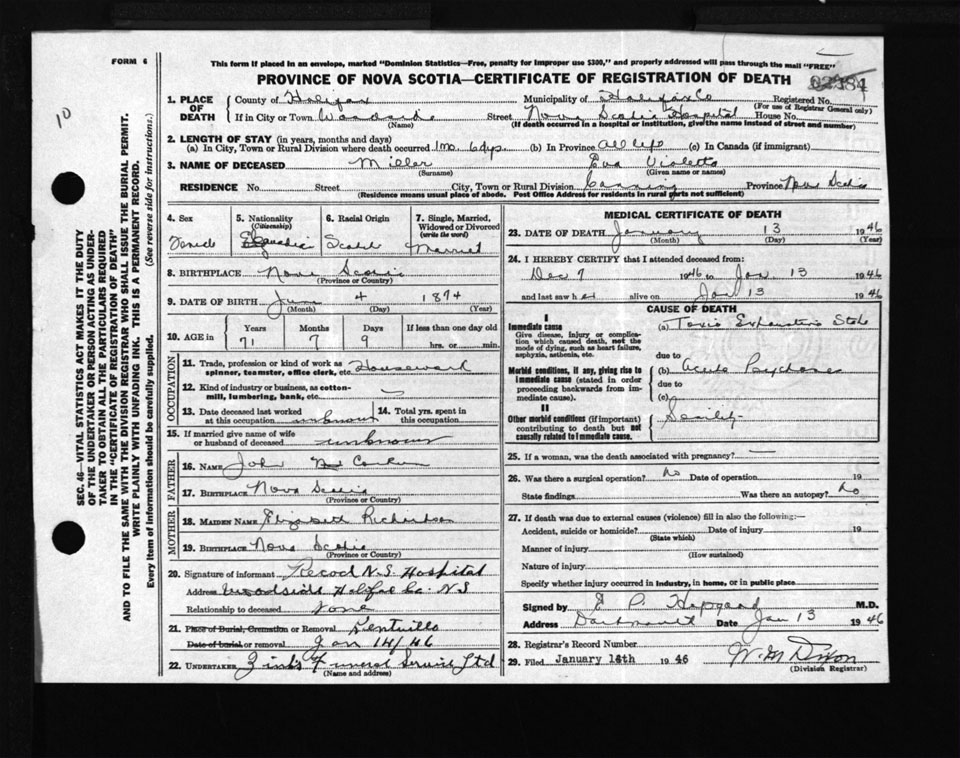 FORM 6
This form if placed in an envelope, marked "Dominion Statistics—Free, penalty for improper use $300," and properly addressed will pass through the mail "FREE"
PROVINCE OF NOVA SCOTIA—CERTIFICATE OF REGISTRATION OF DEATH
10
SEC. 46—VITAL STATISTICS ACT MAKES IT THE DUTY
OF THE UNDERTAKER OR PERSON ACTING AS UNDER-
TAKER TO OBTAIN ALL THE PARTICULARS REQUIRED
IN THE "CERTIFICATE OF REGISTRATION OF DEATH"
AND TO FILE THE SAME WITH THE DIVISION REGISTRAR WHO SHALL ISSUE THE BURIAL PERMIT.
WRITE PLAINLY WITH UNFADING INK. THIS IS A PERMANENT RECORD.
Every item of information should be carefully supplied. (See reverse side for instructions.)
1. PLACE OF DEATH
County of Halifax Municipality of Halifax Co Registered No.
(For use of Registrar General only)
If in City or Town Woodside Street Nova Scotia Hospital House No.
(Name) (If death occurred in a hospital or institution, give the name instead of street and number)
2. LENGTH OF STAY (in years, months and days)
(a) In City, Town or Rural Division where death occurred 1 mo. 6 dys. (b) In Province All life (c) In Canada (if immigrant)
3. NAME OF DECEASED Miller Eva Violetta
(Surname) (Given name or names)
RESIDENCE No. Street City, Town or Rural Division Canning Province Nova Scotia
(Residence means usual place of abode. Post Office Address for residents in rural parts not sufficient)
4. Sex
Female
5. Nationality
(Citizenship)
Canadian
6. Racial Origin
Scotch
7. Single, Married,
Widowed or Divorced
(write the word)
Married
8. BIRTHPLACE Nova Scotia
(Province or Country)
9. DATE OF BIRTH June 4 1874
(Month) (Day) (Year)
10. AGE in
Years Months Days If less than one day old
71 7 9 hrs. or min.
OCCUPATION
11. Trade, profession or kind of work as spinner, teamster, office clerk, etc.
12. Kind of industry or business, as cotton-mill, lumbering, bank, etc. —
13. Date deceased last worked at this occupation unknown 14. Total yrs. spent in this occupation
15. If married give name of wife or husband of deceased unknown
FATHER
16. NAME John
17. BIRTHPLACE Nova Scotia
(Province or Country)
MOTHER
18. MAIDEN NAME Elizabeth Richardson
19. BIRTHPLACE Nova Scotia
(Province or Country)
20. Signature of informant Record N.S. Hospital
Address Woodside Halifax Co. N.S
Relationship to deceased None
21. Place of Burial, Cremation or Removal Kentville
Date of burial or removal Jan 14/46
22. UNDERTAKER Zink's Funeral Service Ltd
(Name and address)
MEDICAL CERTIFICATE OF DEATH
23. DATE OF DEATH January 13 1946
(Month) (Day) (Year)
24. I HEREBY CERTIFY that I attended deceased from:
Dec 7 1946 to Jan 13 1946
and last saw her alive on Jan 13 1946
CAUSE OF DEATH
I
Immediate cause
Give disease, injury or complica-
tion which caused death, not the
mode of dying, such as heart failure,
asphyxia, asthenia, etc.
(a) Toxic Exhaustion State
due to
Morbid conditions, if any, giving rise to
immediate cause (stated in order
proceeding backwards from im-
mediate cause).
(b) Acute Psychoses
due to
(c)
II
Other morbid conditions (if important)
contributing to death but not
causally related to immediate cause.
Senility
25. If a woman, was the death associated with pregnancy? —
26. Was there a surgical operation? No Date of operation 19
State findings Was there an autopsy? No
27. If death was due to external causes (violence) fill in also the following:—
Accident, suicide or homicide? Date of injury 19
(State which)
Manner of injury
(How sustained)
Nature of injury
Specify whether injury occurred in industry, in home, or in public place
Signed by E P. Hapgood M.D.
Address Dartmouth Date Jan 13 1946
28. Registrar's Record Number
29. Filed January 1946 W. M Dixon
(Division Registrar)